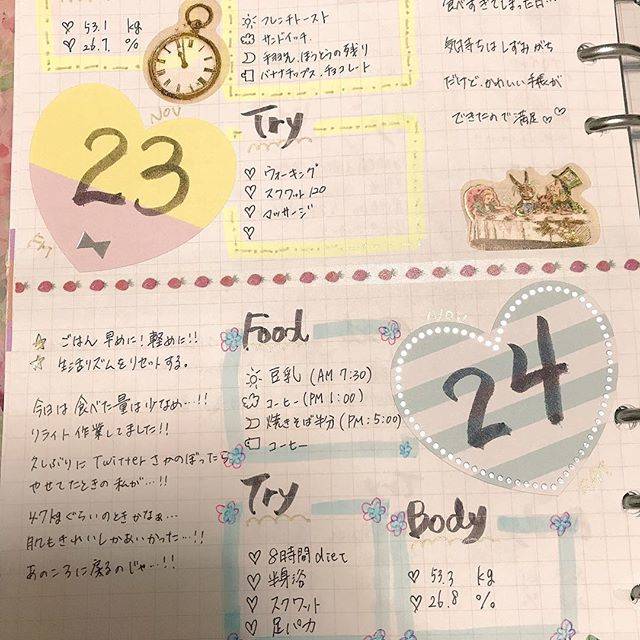 ♡ 53.1 kg
♡ 26.7 %
フレンチトースト
サンドイッチ
手羽先、ほうとうの残り
バナナチップス、チョコレート
食べすぎてしまった日…
気持ちはしずみがち
だけど、かわいい手帳が
できたので満足♡♡
NOV
23
Try
♡ ウォーキング
♡ スクワット120
♡ マッサージ
♡
☆ ごはん 早めに!軽めに!!
☆ 生活リズムをリセットする。
今日は食べた量は少なめ…!!
リライト作業してました!!
久しぶりにTwitterさかのぼったら
やせてたときの私が…!!
47kgぐらいのときかなぁ…
肌もきれいしかおいかった…!!
あのころに戻るのじゃ…!!
Food
豆乳 (AM 7:30)
コーヒー (PM 1:00)
焼きそば半分 (PM:5:00)
コーヒー
Nov
24
Try
♡ 8時間diet
♡ 半身浴
♡ スクワット
♡ 足パカ
Body
♡ 53.3 kg
♡ 26.8 %